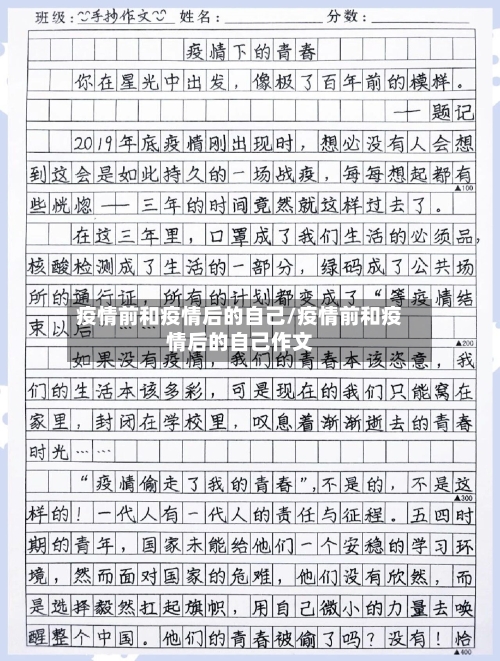 班级:手抄作文 姓名: 分数:
疫情下的青春
你在星光中出发，像极了百年前的模样。
——题记
2019年底疫情刚出现时，想必没有人会想
到这会是如此持久的一场战疫，每每想起都有
▲100
些恍惚——三年的时间竟然就这样过去了。
在这三年里，口罩成了我们生活的必须品，
核酸检测成了生活的一部分，绿码成了公共场
所的通行证，所有的计划都变成了“等疫情结
疫情前和疫情后的自己/疫情前和疫
束以后
▲200
情后的自己作文
如果没有疫情，我们的青春本该恣意，我
们的生活本该多彩，可是现在的我们只能窝在
家里，封闭在学校里，叹息着渐渐逝去的青春
时光……
“疫情偷走了我的青春”，不是的，不是这
▲300
样的！一代人有一代人的责任与征程。五四时
期的青年，国家未能给他们一个安稳的学习环
境，然而面对国家的危难，他们没有欣然，而
是选择毅然扛起旗帜，用自己微小的力量去唤
醒整个中国。他们的青春被偷了吗？没有！恰
▲400